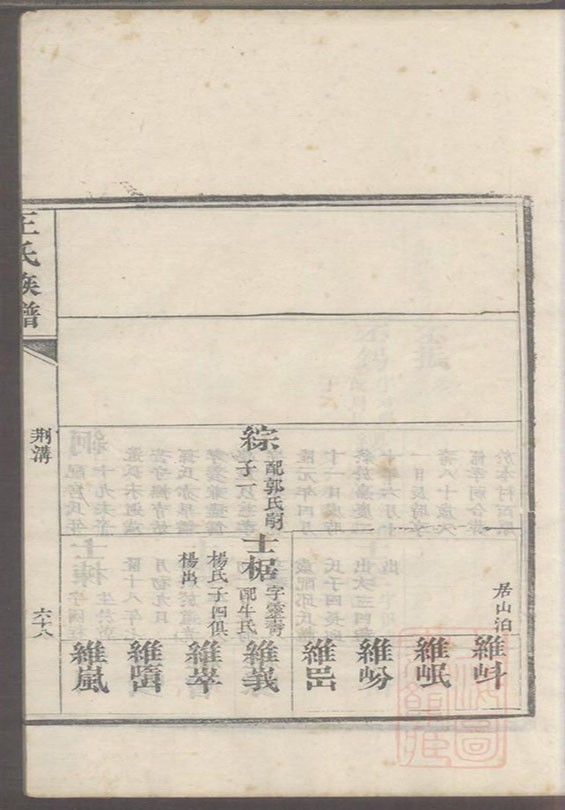 居山泊
維㞳
維岷
維岎
維岊
綜
配郭氏嗣
子一
士椐
字靈壽
配牛氏
楊氏子四俱
楊出
維峩
維崒
維嵐
王氏族譜
荆溝
六十八